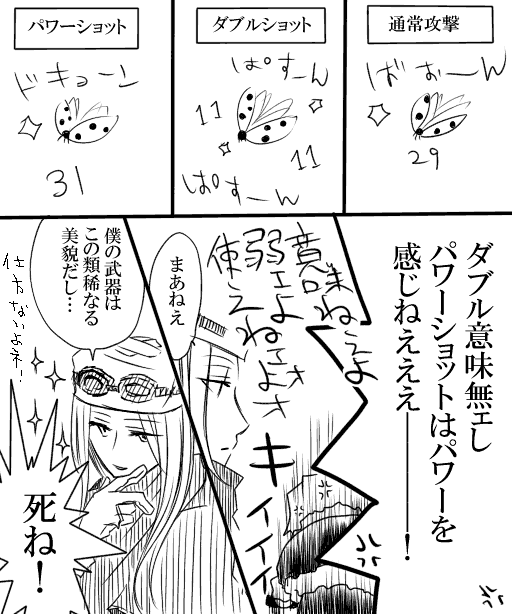 通常攻撃
ばぉーん
29
ダブルショット
ぱすーん
11
11
ぱすーん
パワーショット
ドキューン
31
ダブル意味無エし
パワーショットはパワーを
感じねえええ━━━！
意味ねぇよ
弱ェよ
使えねェよォォ
キィイイイ
まあねえ
僕の武器は
この類稀なる
美貌だし…
仕方ないよネ！
死ね！